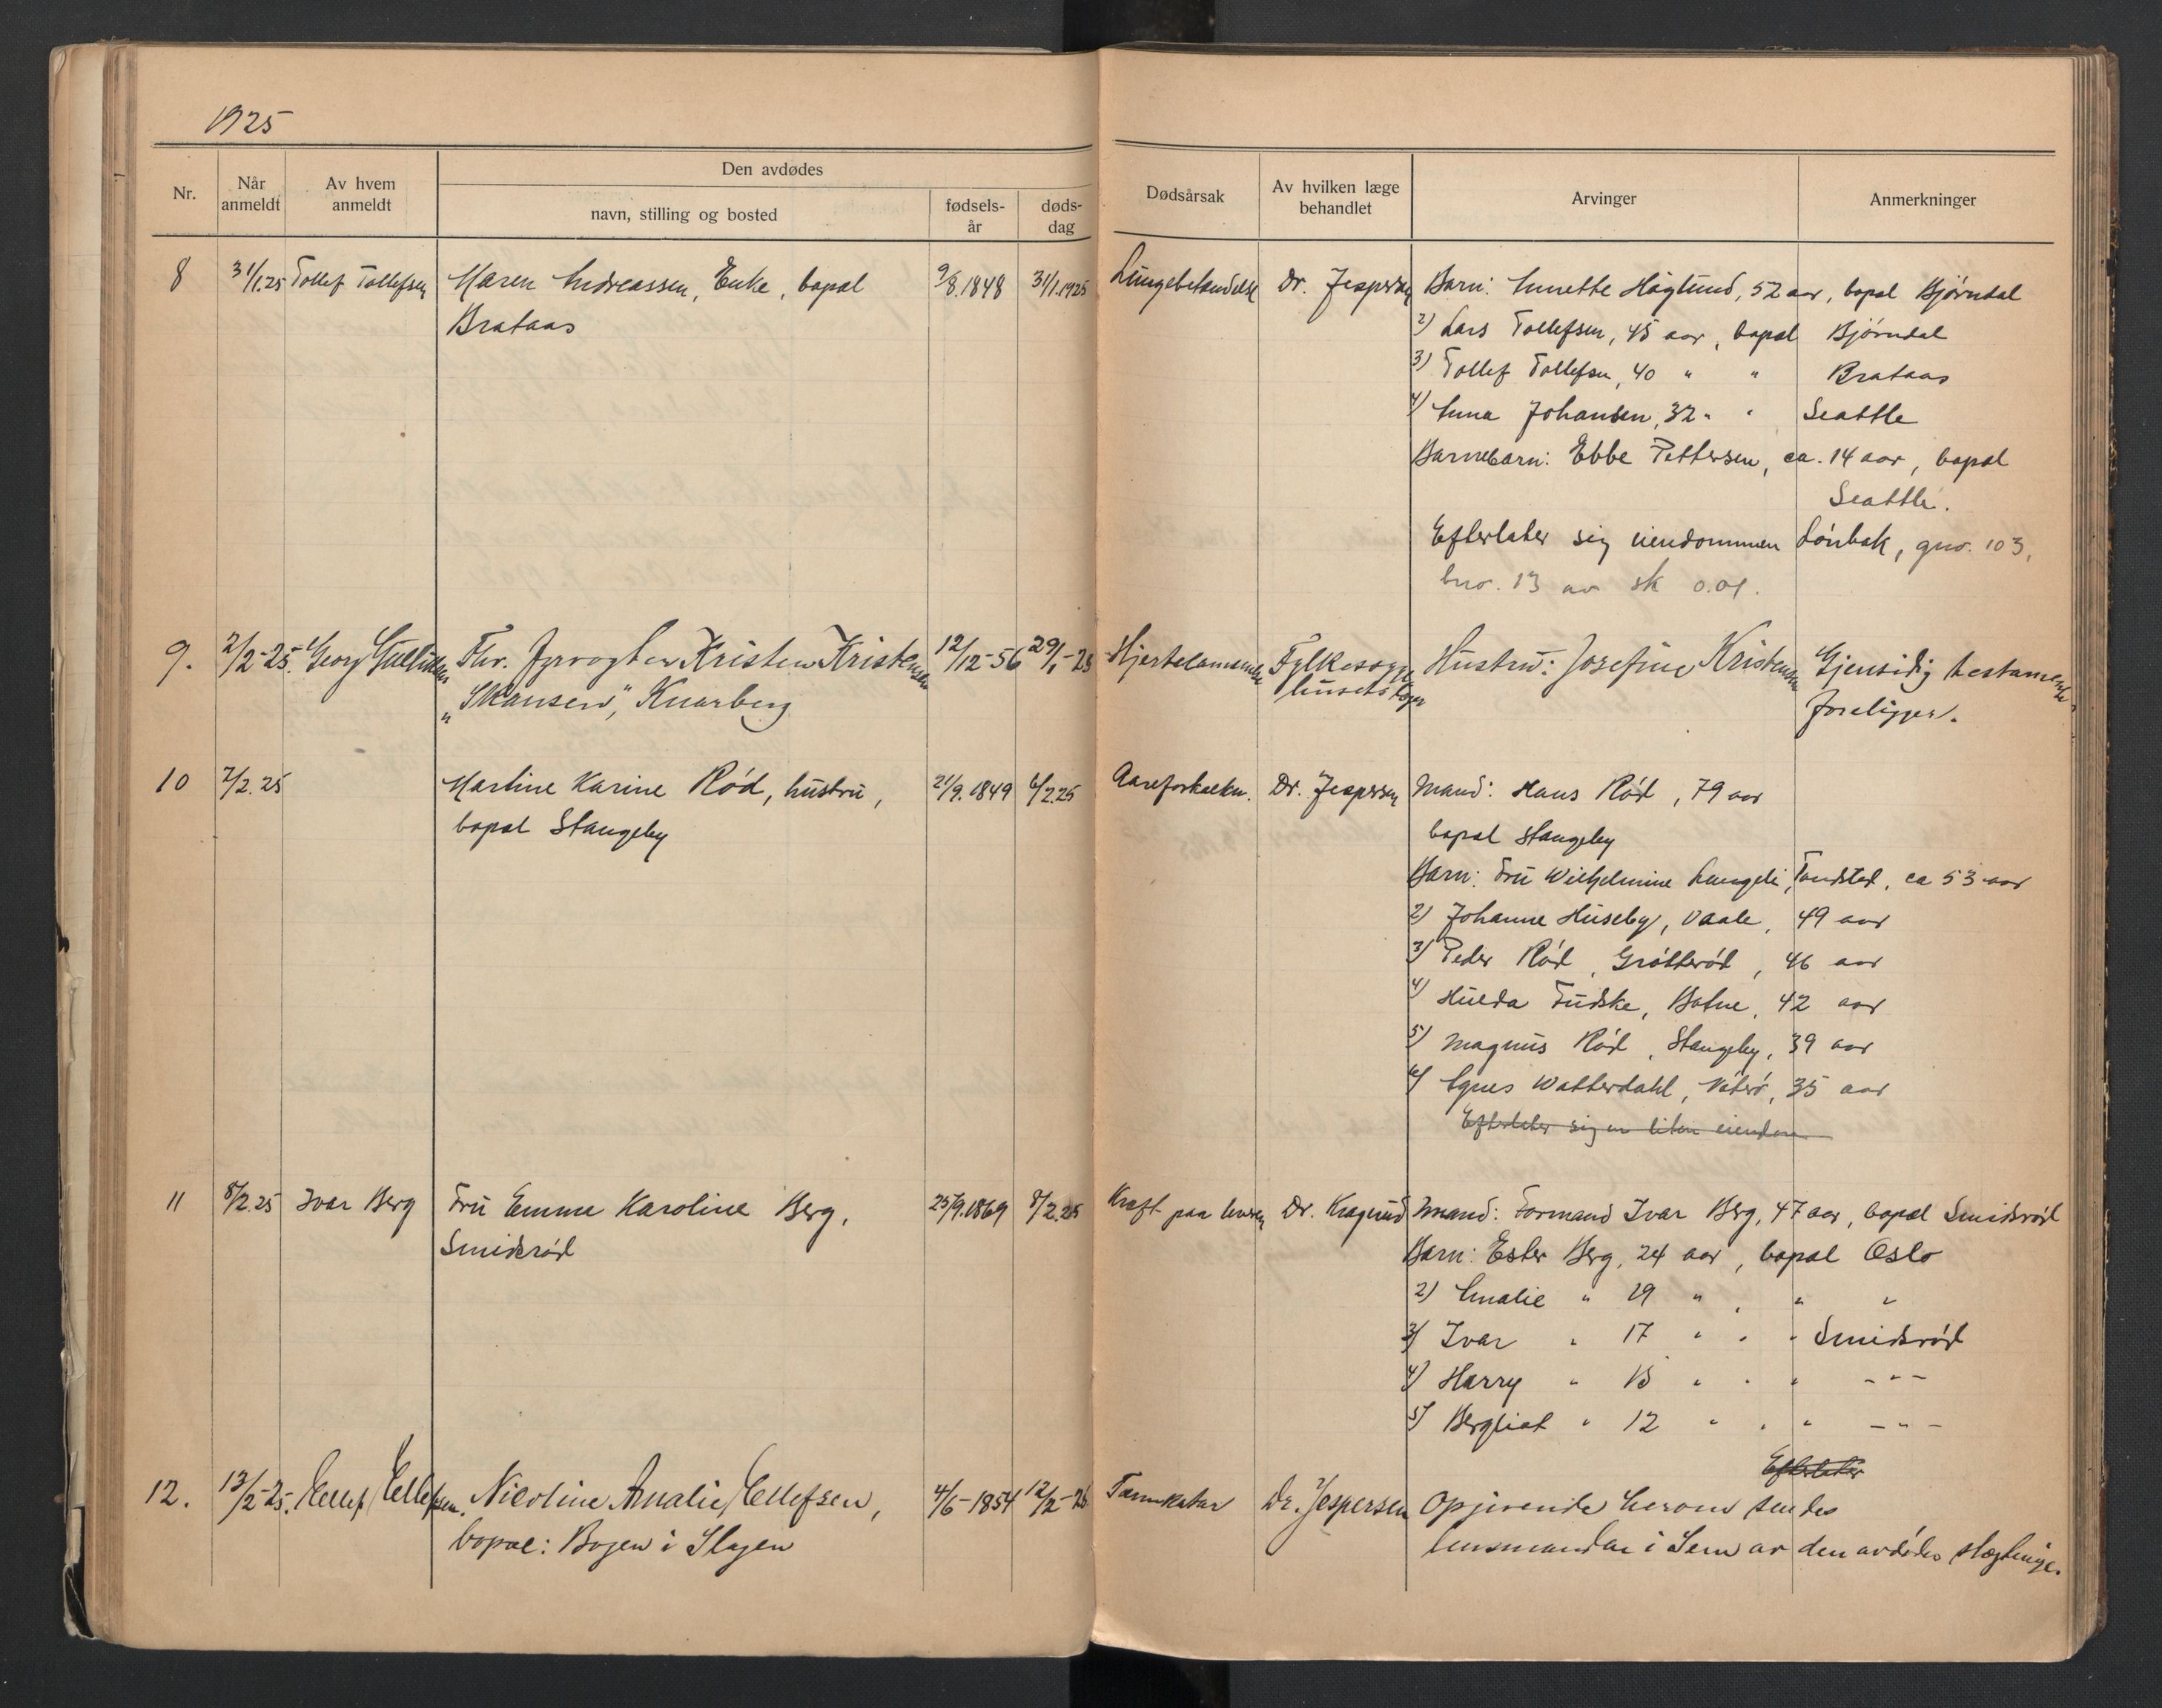 1925
Nr.
Når anmeldt
Av hvem anmeldt
Den avdødes
navn, stilling og bosted
fødsels-år
døds-dag
Dødsårsak
Av hvilken læge behandlet
Arvinger
Anmerkninger
8 31/1.25 Tollef Tollefsen Maren Andreassen, Enke, bopal 9/8.1848 31/1.1925 Dr. Jespersen Barn: Annette Høglund, 52 aar, bopal Bjørndal
Brataas
2) Lars Tollefsen, 45 aar, bopal Bjørndal
3) Tollef Tollefsen, 40 " " Brataas
4) Anna Johansen, 32 " " Seattle
Barnebarn: Ebbe Pettersen, ca. 14 aar, bopal
Seattle.
Efterlater sig eiendommen Lønbak, gno. 103,
bno. 13 av sk 0.01.
9. 2/2-25. Georg Gulliksen Fhv. Fyrvogter Kristen Kristensen 12/12-56 29/1-25 Hjertelammelse Fylkessyge Hustru: Josefine Kristensen Gjensidig testamente
„Skansen", Knarberg husets læge foreligger.
10 7/2.25 Martine Karine Rød, hustru, 21/9.1849 6/2.25 Aareforkalkn. Dr. Jespersen Mand: Hans Rød, 79 aar
bopal Stangeby bopal Stangeby
Barn: Fru Wilhelmine Langeli, ca 53 aar
2) Johanne Huseby, Vaale, 49 aar
3) Peder Rød, Grøtterød, 46 aar
4) Hulda Fudske, Botne, 42 aar
5) Magnus Rød, Stangeby, 39 aar
6) Agnes Watterdahl, Nøterø, 35 aar
Efterlater sig en liten eiendom
11 8/2.25 Ivar Berg Fru Emma Karoline Berg, 25/9.1869 8/2.25 Kræft paa leveren Dr. Kragerud Mand: Formand Ivar Berg, 47 aar, bopal Smidsrød
Smidsrød Barn: Ester Berg, 24 aar, bopal Oslo
2) Amalie " 19 " , " "
3) Ivar " 17 " " " Smidsrød
4) Harry " 15 " " " - " -
5) Bergliot " 12 " " " - " -
Efterlater
12. 13/2-25. Ellef Ellefsen. Nicoline Amalie Ellefsen, 4/6-1854 12/2-25 Tarmkatar Dr. Jespersen Opgivende herom sendes
bopæl: Bogen i Slagen lensmanden i Sem av den avdødes slægtninge.